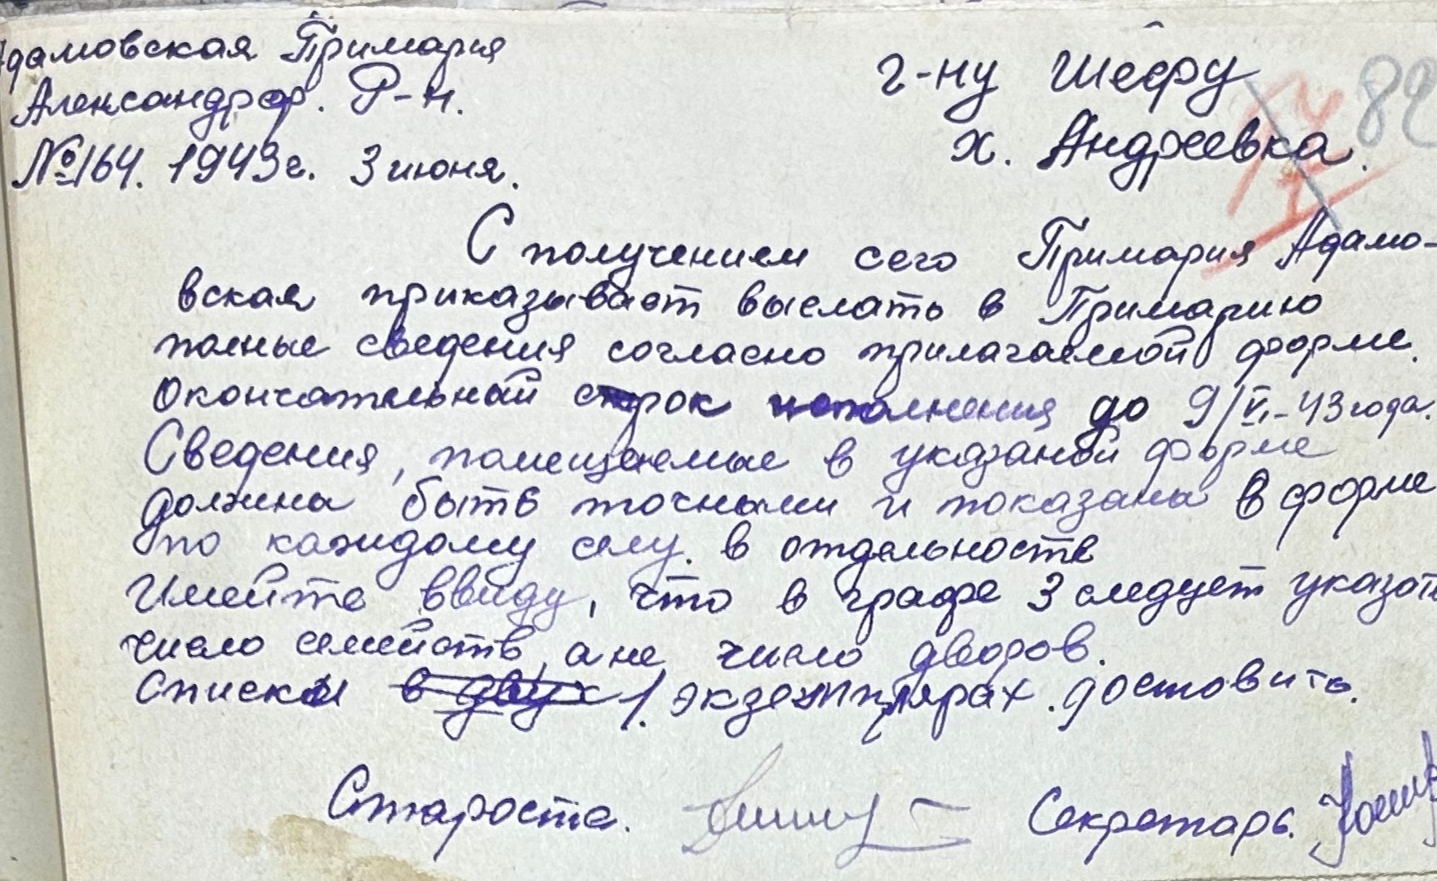 Адамовская Примария
Александров. Р-н.
№164. 1943г. 3 июня.
г-ну Шефу
х. Андреевка.
82
С получением сего Примария Адамо-
вская приказывает выслать в Примарию
полные сведения согласно прилагаемой форме.
Окончательный срок исполнения до 9/VI-43 года.
Сведения, помещаемые в указаной форме
должна быть точными и показана в форме
по каждому селу в отдельноств
Имейте ввиду, что в графе 3 следует указать
число семейств, а не число дворов.
Списки в двух 1. экземплярах доставить.
Староста. Секретарь.